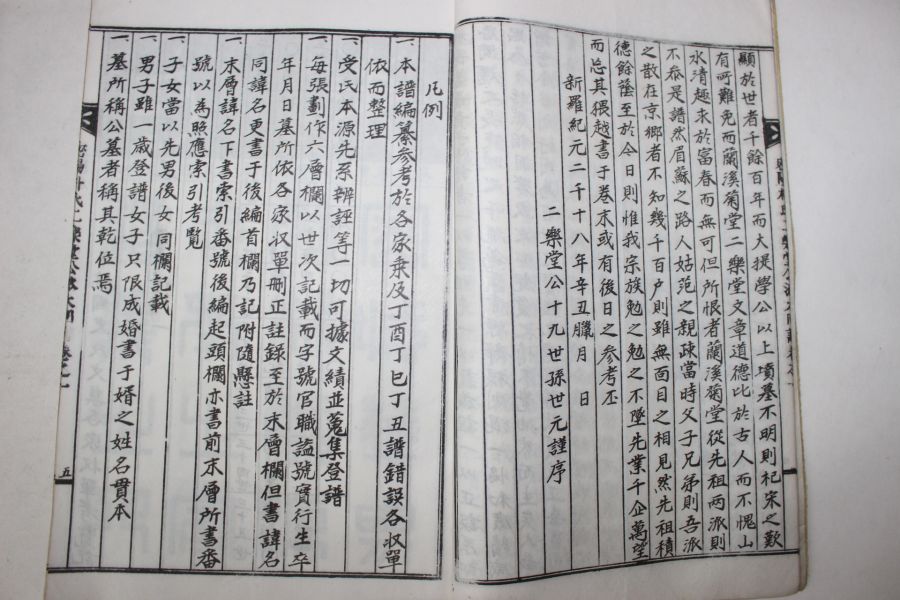 顯於世者千餘百年而大提學公以上墳墓不明則杞宋之歎
有所難免而蘭溪菊堂二樂堂文章道德比於古人而不愧山
水清趣求於富春而無可但所恨者蘭溪菊堂從先祖兩派則
不忝是譜然眉蘇之路人姑范之親疎當時父子兄弟則吾派
之散在京鄉者不知幾千百戶則雖無面目之相見然先祖積
德餘蔭至於今日則惟我宗族勉之勉之不墜先業千企萬望
而忘其猥越書于卷末或有後日之參考丕
新羅紀元二千十八年辛丑臘月 日
二樂堂公十九世孫世元謹序
凡例
一、本譜編纂參考於各家乘及丁酉丁巳丁丑譜錯誤各收單
依而整理
一、受氏本源先系辨誣等一切可據文績並蒐集登譜
一、每張劃作六層欄以世次記載而字號官職謚號實行生卒
年月日墓所依各家收單刪正註錄至於末層欄但書諱名
同諱名更書于後編首欄乃記附隨懸註
一、末層諱名下書索引番號後編起頭欄亦書前末層所書番
號以為照應索引考覽
一、子女當以先男後女同欄記載
一、男子雖一歲登譜女子只限成婚書于婿之姓名貫本
一、墓所稱公墓者稱其乾位焉
五